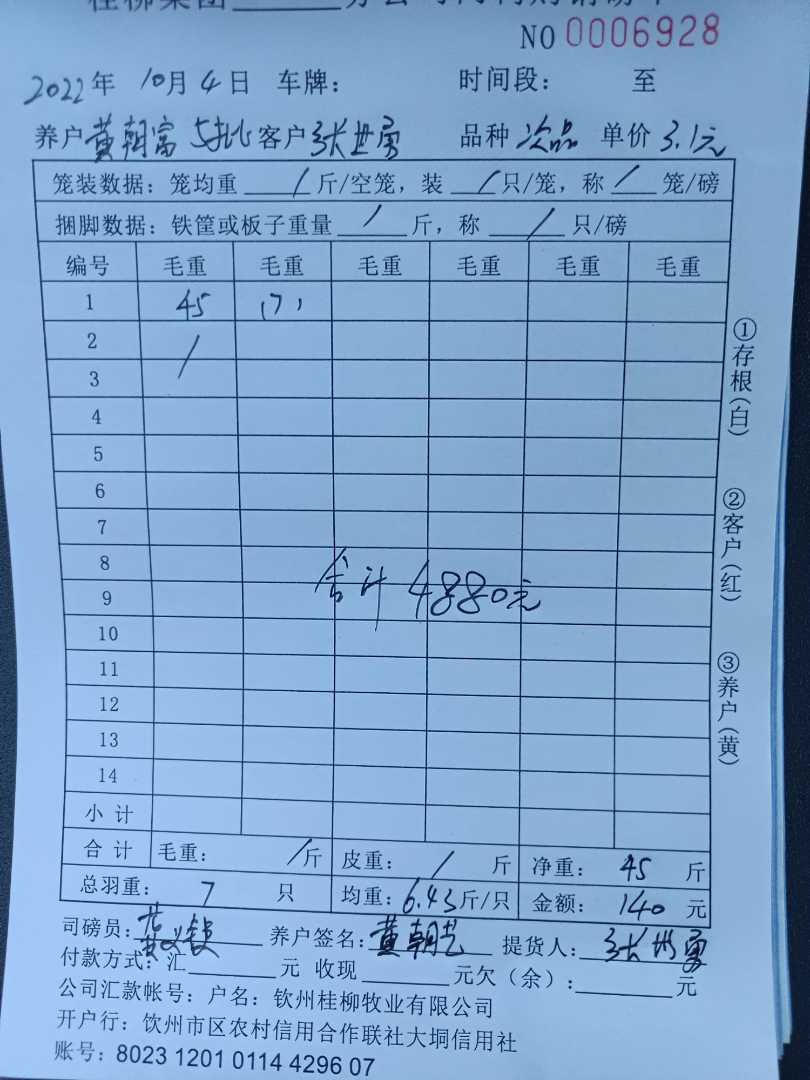 桂柳集团
NO 0006928
2022年 10月 4日 车牌： 时间段： 至
养户 黄朝富 5批 客户 张世勇 品种 次品 单价 3.1元
笼装数据：笼均重 / 斤/空笼，装 / 只/笼，称 / 笼/磅
捆脚数据：铁筐或板子重量 / 斤，称 / 只/磅
编号 毛重 毛重 毛重 毛重 毛重 毛重
1 45 (7)
2 /
3
4
5
6
7
8
合计 4880元
9
10
11
12
13
14
小计
合计 毛重： / 斤 皮重： / 斤 净重： 45 斤
总羽重： 7 只 均重：6.43斤/只 金额： 140 元
司磅员： 养户签名： 黄朝艺 提货人： 张世勇
付款方式：汇 元 收现 元欠（余）： 元
公司汇款帐号：户名：钦州桂柳牧业有限公司
开户行：饮州市区农村信用合作联社大垌信用社
账号：8023 1201 0114 4296 07
①存根（白） ②客户（红） ③养户（黄）